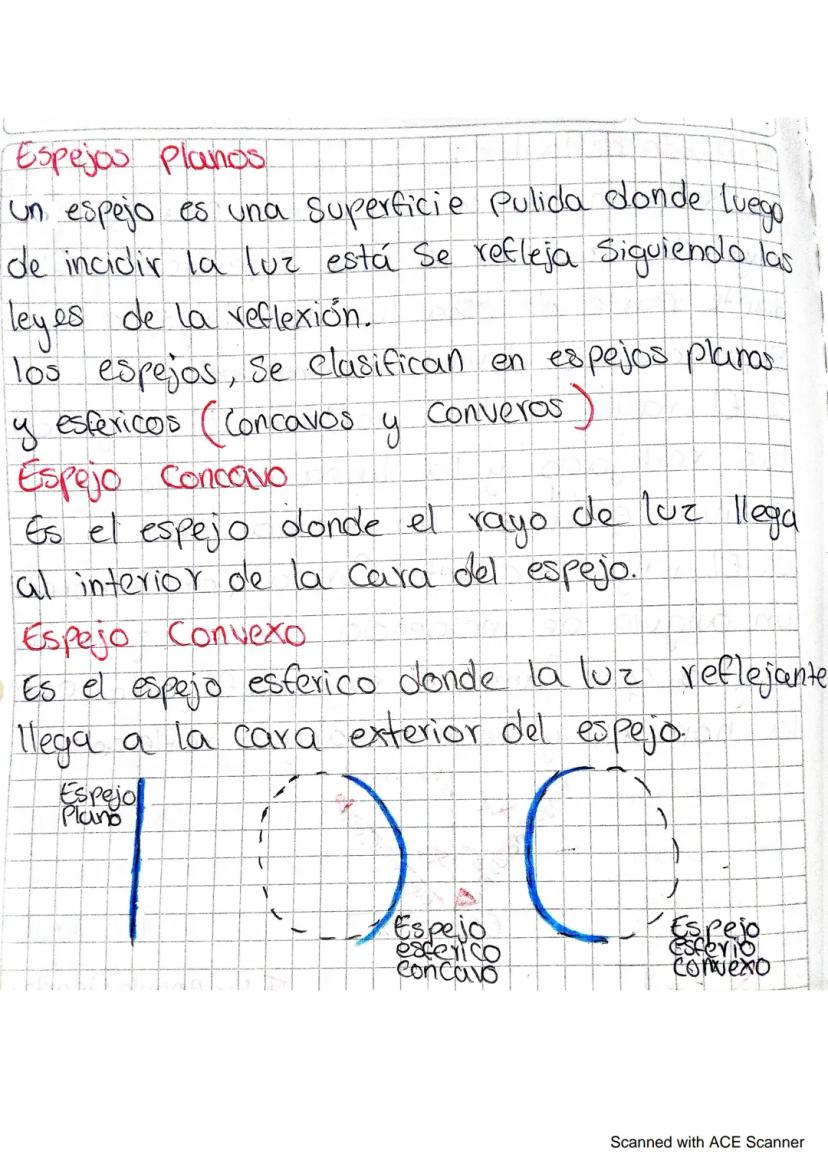 Espejos Planos
Un espejo es una superficie pulida donde luego
de incidir la luz está se refleja siguiendo las
leyes de la reflexión.
los espejos, se clasifican en espejos planos
y esfericos (Concavos y converos)
Espejo Concavo
Es el espejo donde el rayo de luz llega
al interior de la cara del espejo.
Espejo Convexo
Es el espejo esferico donde la luz reflejante
llega a la cara exterior del espejo.
Espejo
Plano
Espejo
esferico
concavo
Espejo
esferio
convexo
Scanned with ACE Scanner